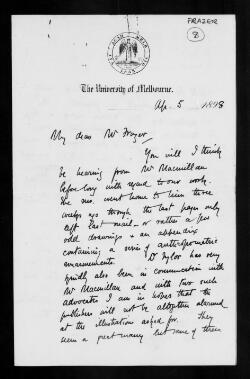 FRAZER
8
The University of Melbourne.
Ap. 5 1898
My dear Mr Frazer,
You will I think
be hearing from Mr Macmillan
before long with regard to our work.
The MS. went home to him three
weeks ago though the last pages only
left last mail — or rather a few
odd drawings in an appendix
containing a series of anthropometric
measurements. Dr Tylor has very
kindly also been in communication with
Mr Macmillan and with two such
advocates I am in hopes that the
publisher will not be altogether alarmed
at the illustrations asked for. They
seem a great many but some of them